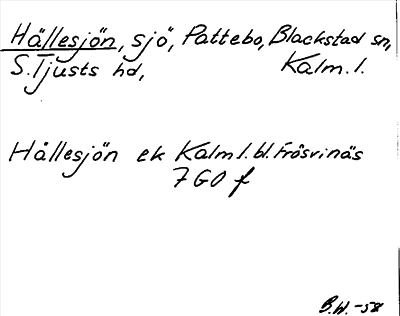 Hällesjön, sjö, Pattebo, Blackstad sn,
S. Tjusts hd, Kalm. l.
Hällesjön ek Kalm l. bl. Frösvinäs
7 G O f
B.W. -58